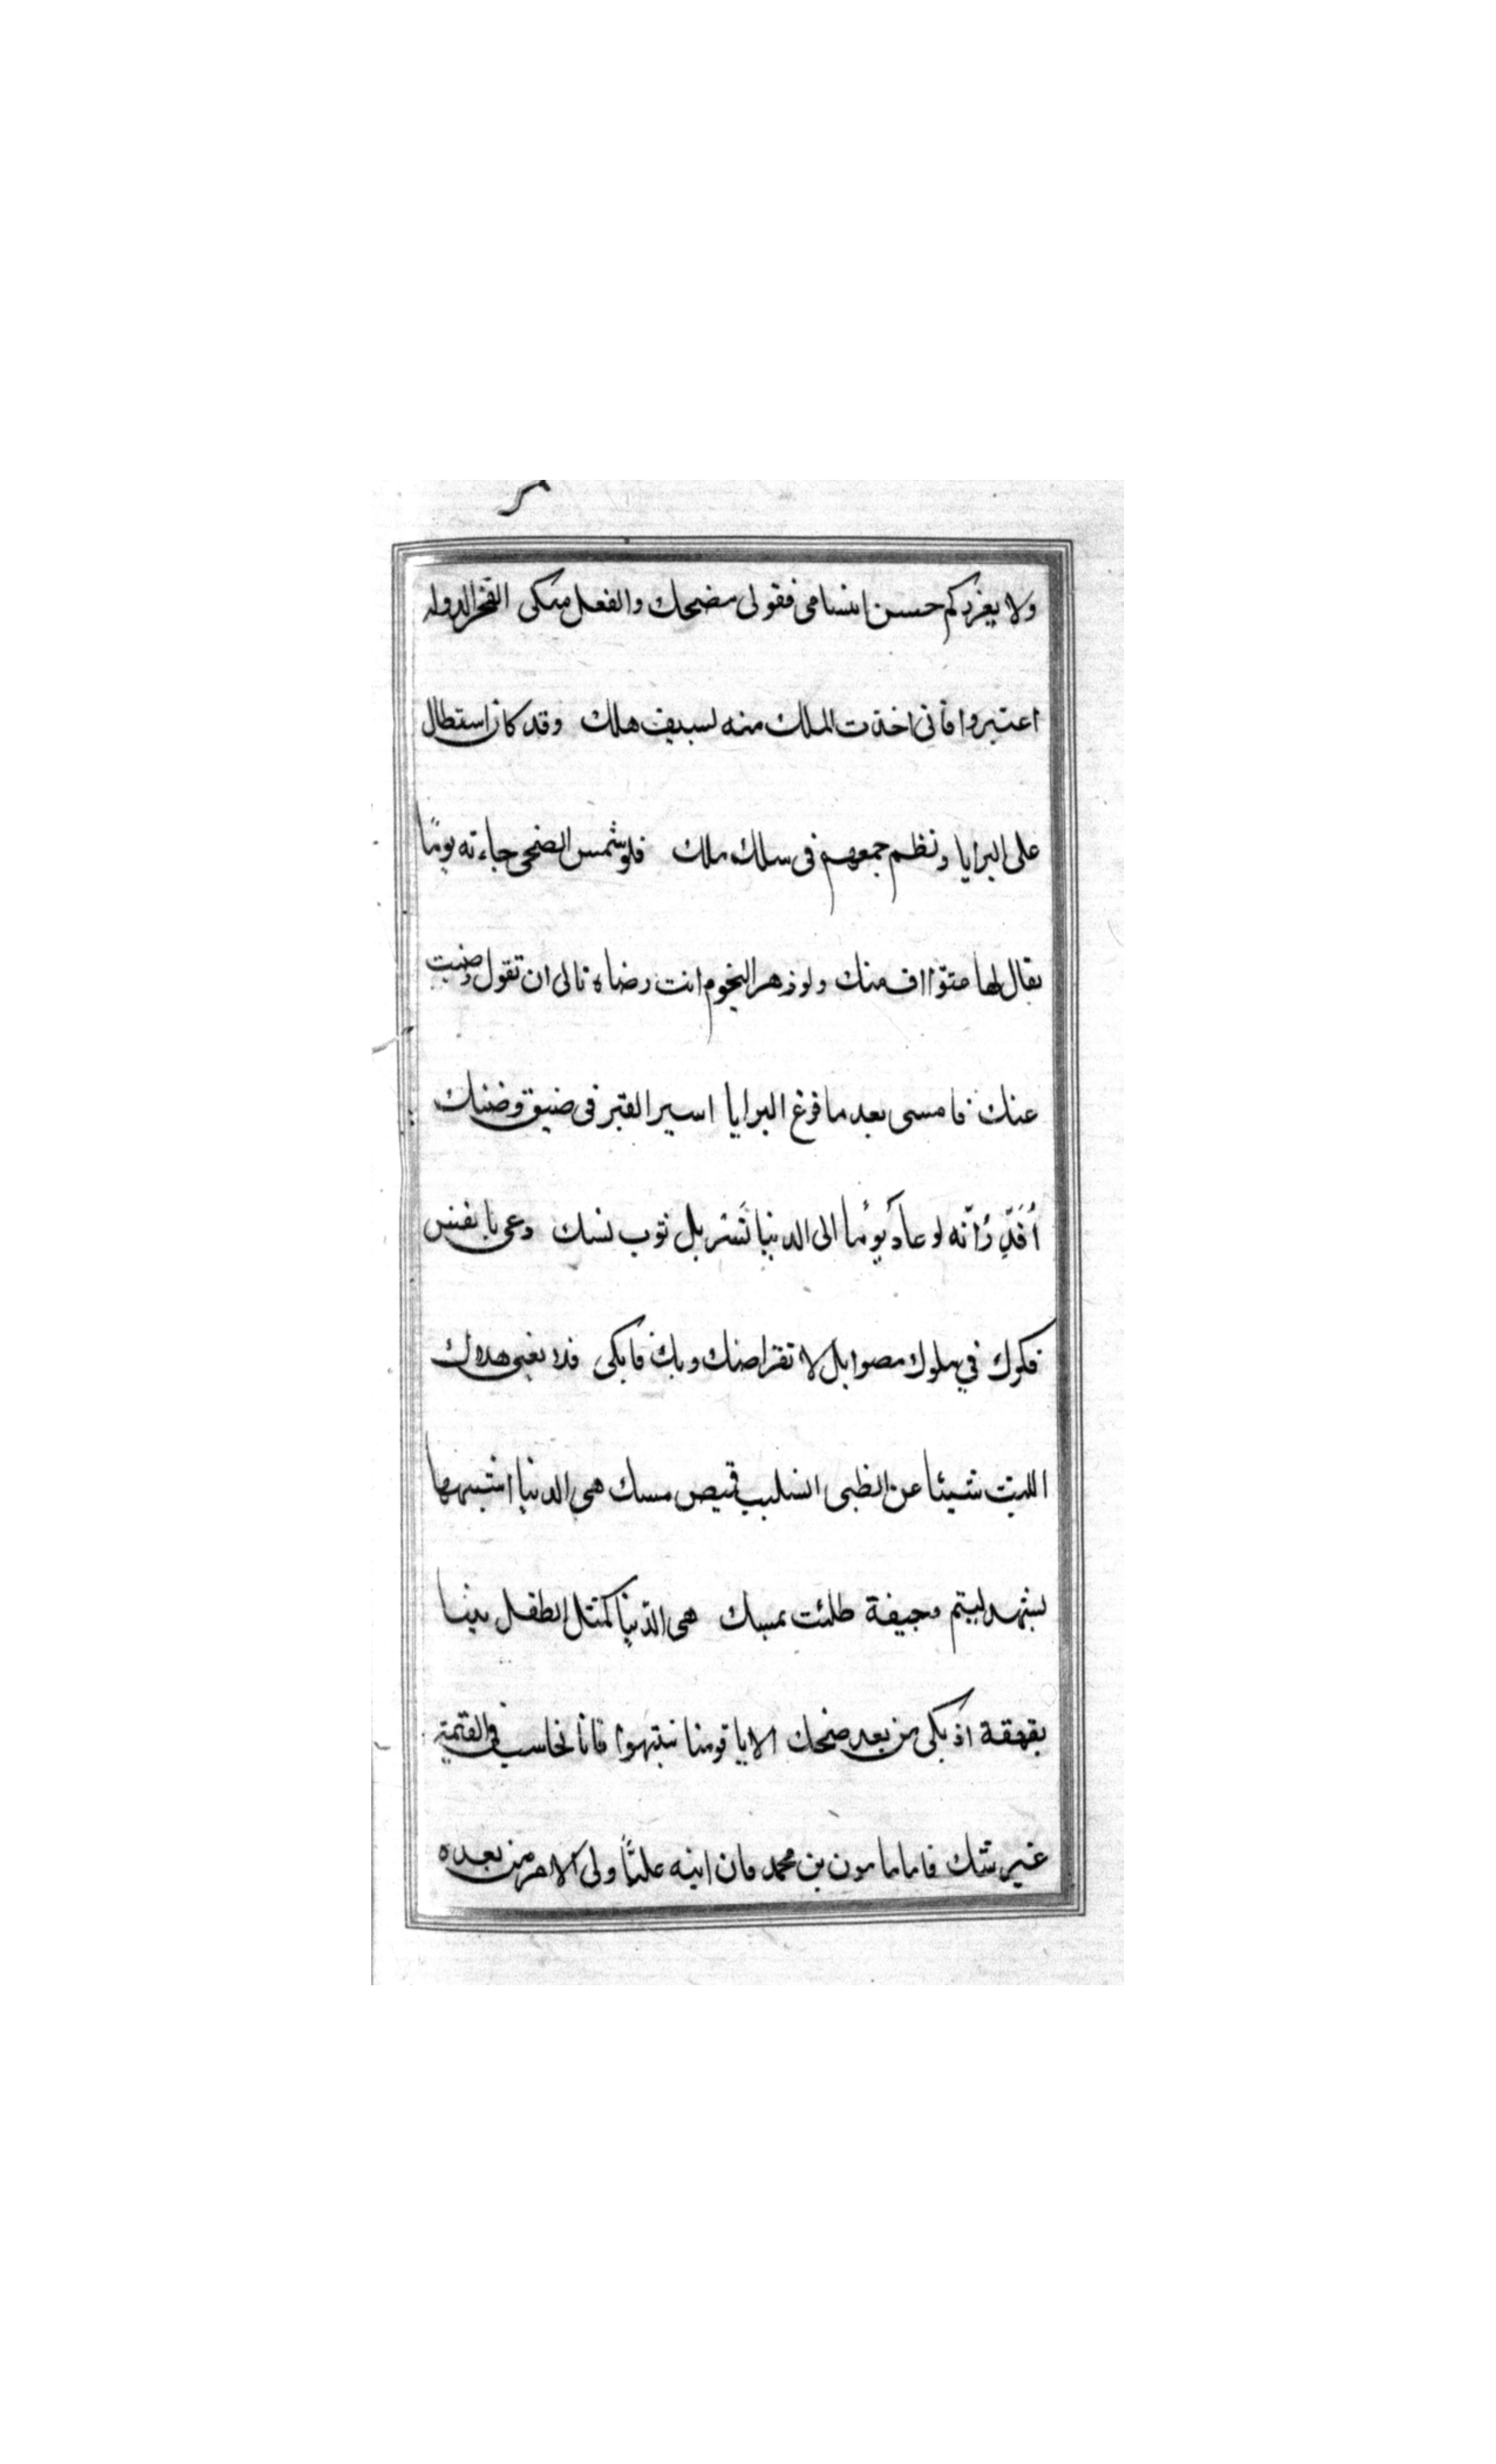 ولا يغرركم حسن ابتسامى فقولى مضحك والفعل مبكى الفخر الدوله
اعتبروا فانى اخذت الملك منه بسيف هلك وقد كان استطال
على البرايا ونظم جمعهم فى سلك ملك فلو شمس الضحى جاءته يومًا
يقال لها عتوّا اف منك ولو زهر النجوم انت رضاه تالى ان تقول رضيت
عنك فامسى بعد ما فرغ البرايا اسير القبر فى ضيق وضنك
أُقَدِّرُ انّه لو عادَ يومًا الى الدنيا تَسَربل ثوب نسك دعى يا نفس
فكرك في ملوك مصوا بل لا تقراضك وبك فابكى فلا يغنى هلاك
الليث شيئا عن الظبى السليب قميص مسك هى الدنيا اشبهها
بشهد ليتم وجيفة طلئت بمسك هى الدّنيا كمثل الطفل بينا
يقهقه اذ بكى من بعد ضحك الا يا قومنا نتبهوا فانا نحاسب فى القيمة
غير شك فاما مامون بن محمد فان ابنه عليًّا ولى الامر من بعده